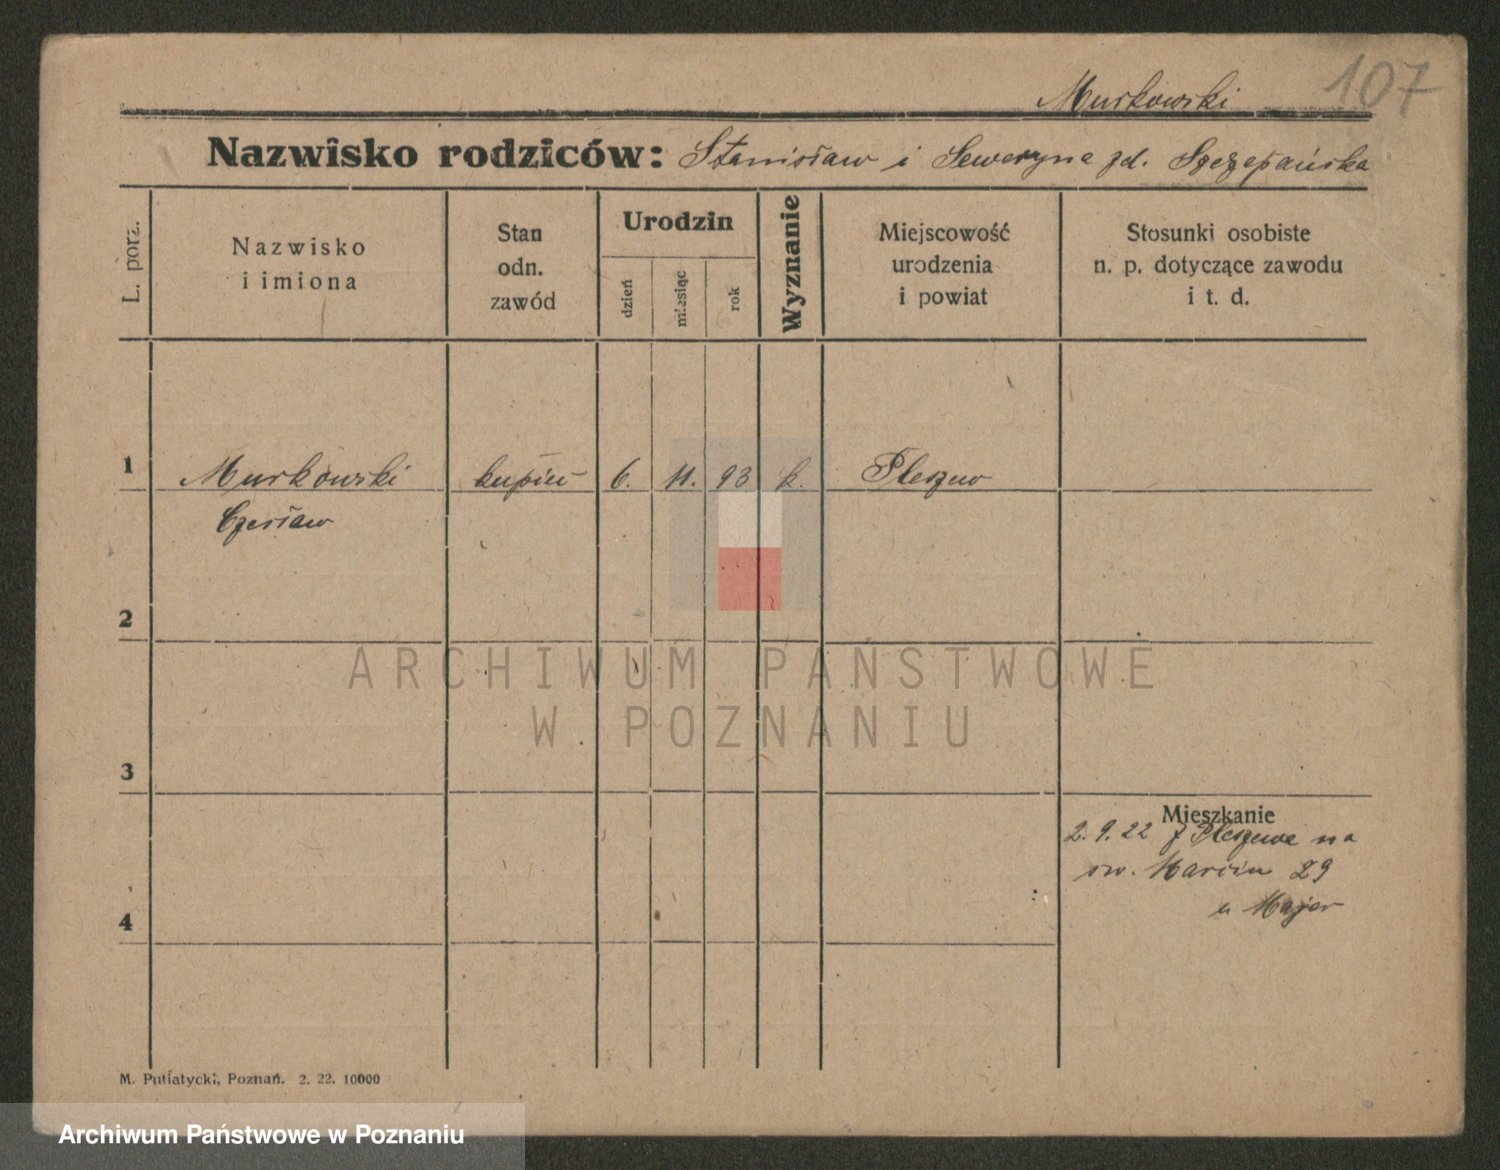 107
Murkowski
Nazwisko rodziców: Stanisław i Seweryna zd. Szczepańska
L. porz.
Nazwisko
i imiona
Stan
odn.
zawód
Urodzin
dzień
miesiąc
rok
Wyznanie
Miejscowość
urodzenia
i powiat
Stosunki osobiste
n. p. dotyczące zawodu
i t. d.
1 Murkowski kupiec 6. 11. 93 k. Pleszew
Czesław
2
ARCHIWUM PAŃSTWOWE
W POZNANIU
3
Mieszkanie
2.9.22 z Pleszewa na
św. Marcin 29
u Majer
4
M. Putiatycki, Poznań. 2. 22. 10000
Archiwum Państwowe w Poznaniu